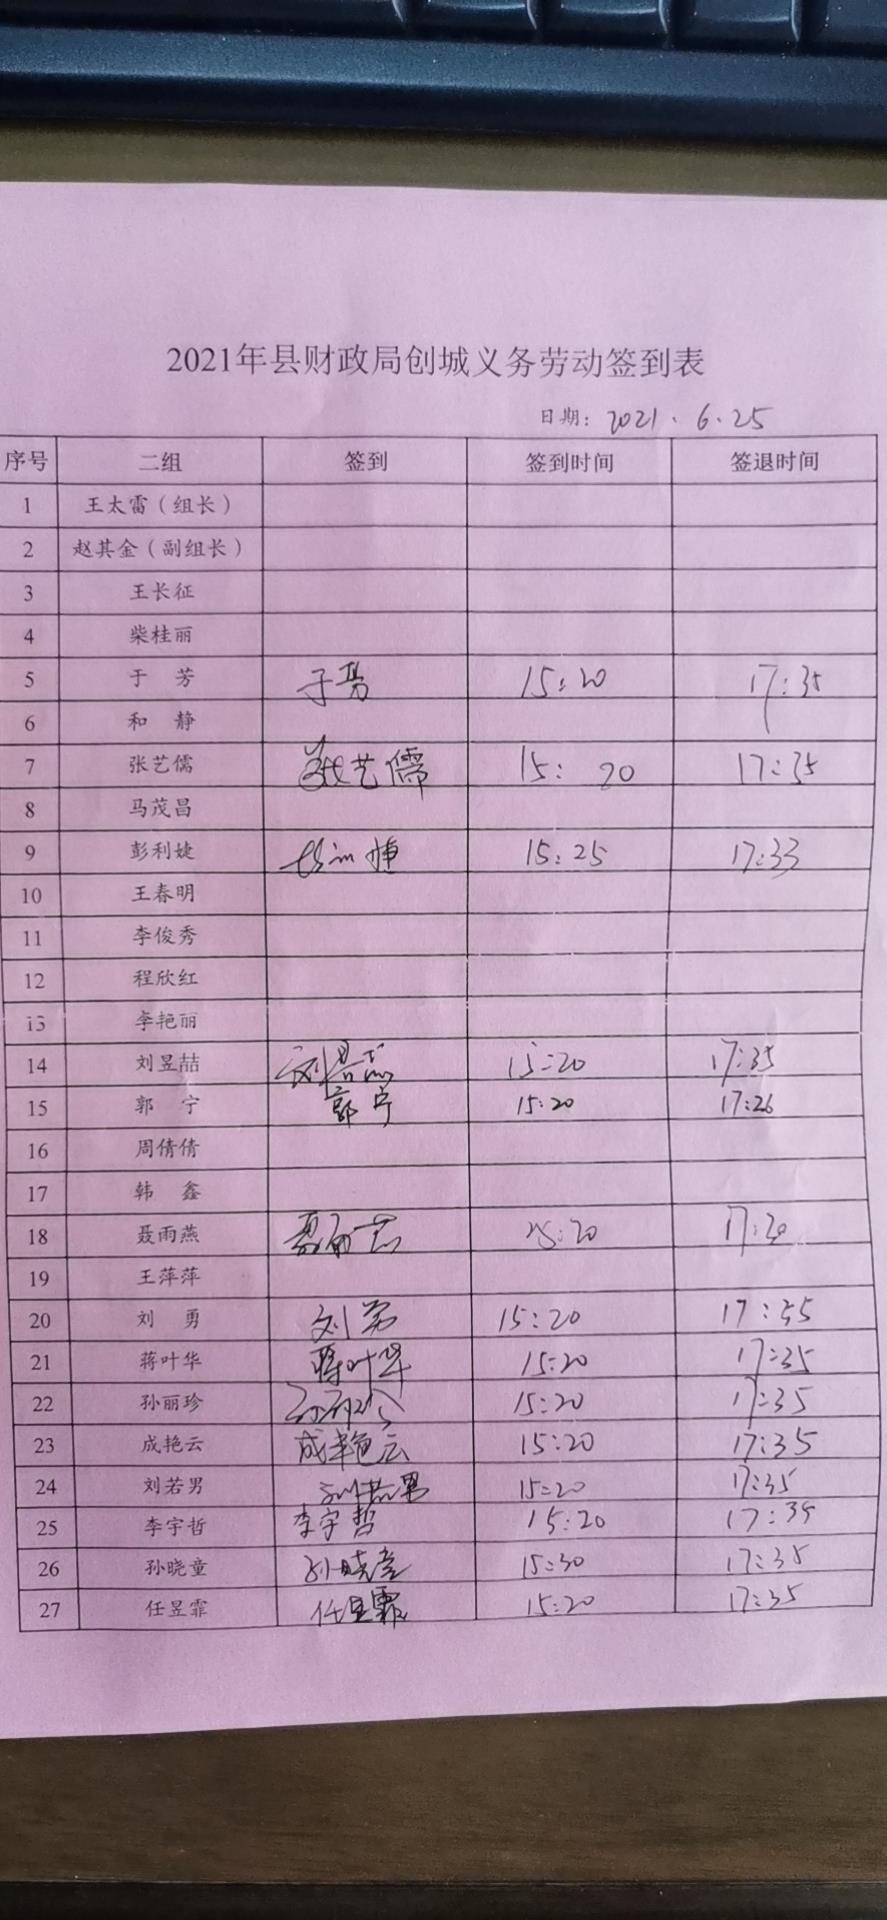 2021年县财政局创城义务劳动签到表
日期: 2021.6.25
序号 二组 签到 签到时间 签退时间
1 王太雷（组长）
2 赵其金（副组长）
3 王长征
4 柴桂丽
5 于 芳 于芳 15:20 17:35
6 和 静
7 张艺儒 张艺儒 15:20 17:35
8 马茂昌
9 彭利婕 15:25 17:33
10 王春明
11 李俊秀
12 程欣红
13 李艳丽
14 刘昱喆 刘昱喆 15:20 17:35
15 郭 宁 郭宁 15:20 17:26
16 周倩倩
17 韩 鑫
18 聂雨燕 聂雨燕 15:20 17:30
19 王萍萍
20 刘 勇 刘勇 15:20 17:35
21 蒋叶华 蒋叶华 15:20 17:35
22 孙丽珍 孙丽珍 15:20 17:35
23 成艳云 成艳云 15:20 17:35
24 刘若男 刘若男 15:20 17:35
25 李宇哲 李宇哲 15:20 17:35
26 孙晓童 孙晓童 15:30 17:35
27 任昱霏 任昱霏 15:20 17:35